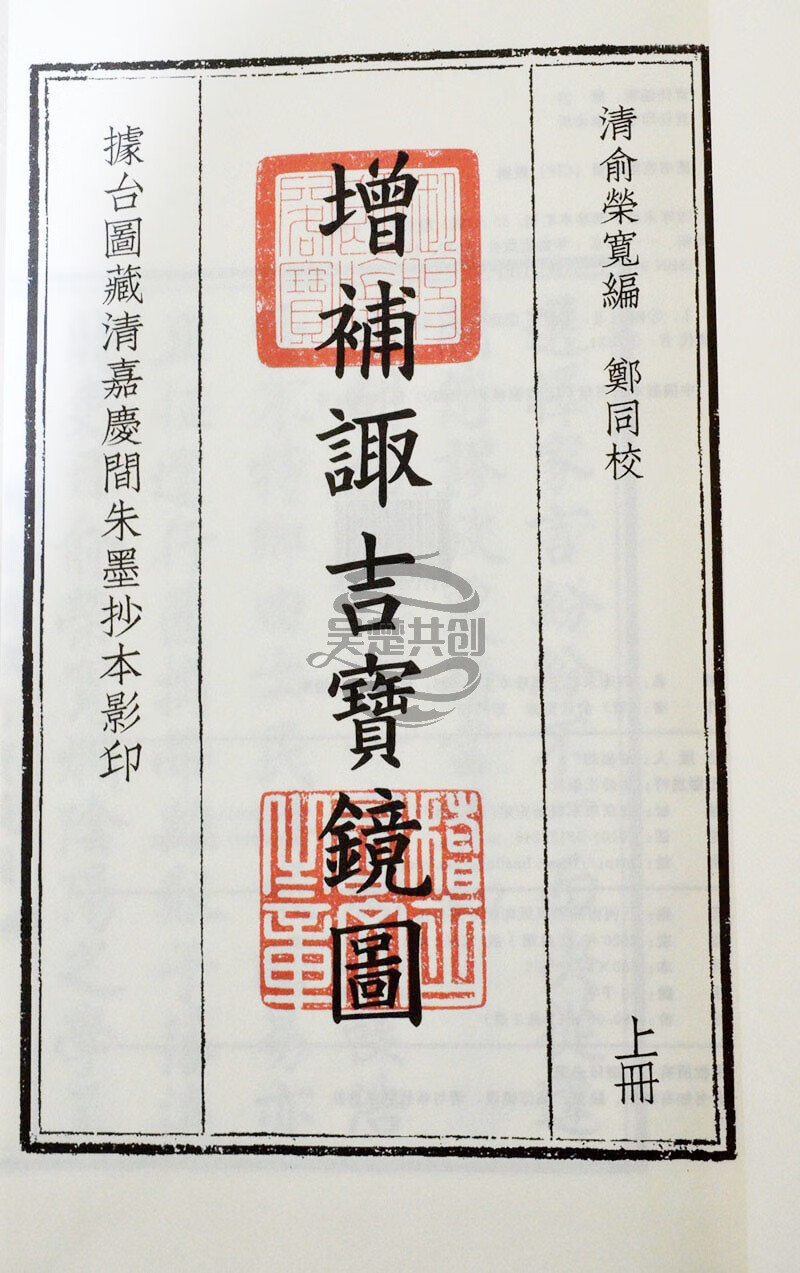 清俞榮寬編 鄭同校
上冊
增補諏吉寶鏡圖
據台圖藏清嘉慶間朱墨抄本影印
吴楚共创